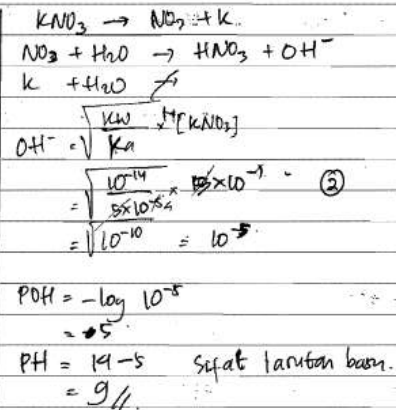 KNO₃ → NO₃ + K
NO₃ + H₂O → HNO₃ + OH⁻
K + H₂O ↛
OH⁻ = √ Kw / Ka × M [KNO₃]
= √ 10⁻¹⁴ / × 10⁻¹ ②
= √10⁻¹⁰ = 10⁻⁵
POH = -log 10⁻⁵
= 5
PH = 14-5 Sifat larutan basa.
= 9 //